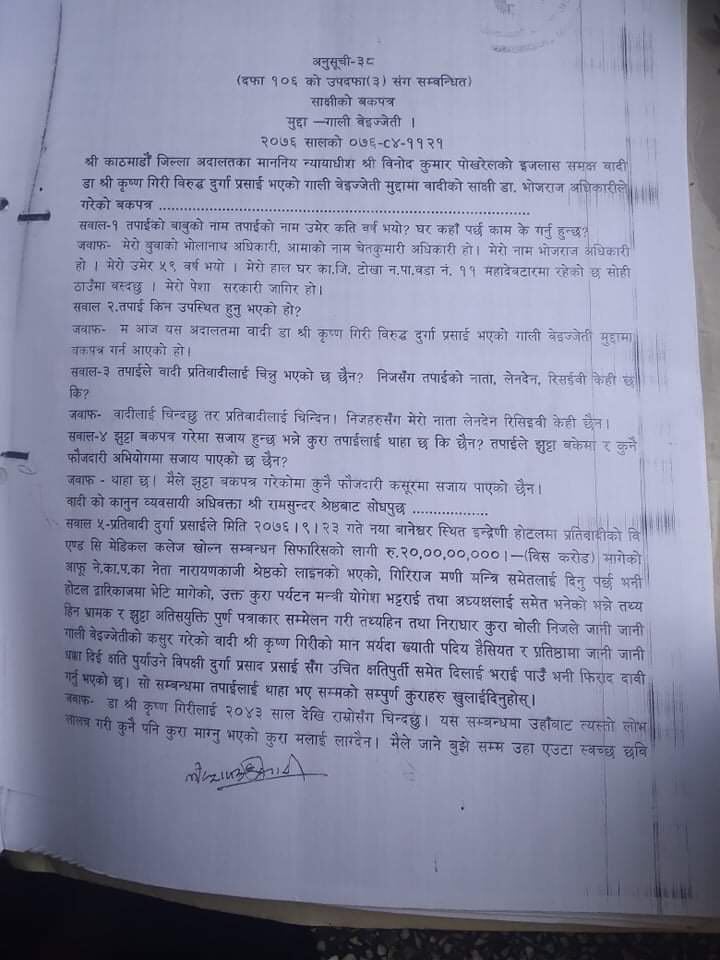 अनुसूची-३८
(दफा १०६ को उपदफा(३) संग सम्बन्धित)
साक्षीको बकपत्र
मुद्दा —गाली बेइज्जेती ।
२०७६ सालको ०७६-C४-११२१
श्री काठमाडौँ जिल्ला अदालतका माननिय न्यायाधीश श्री विनोद कुमार पोखरेलको इजलास समक्ष वादी
डा श्री कृष्ण गिरी विरुद्ध दुर्गा प्रसाई भएको गाली बेइज्जेती मुद्दामा वादीको साक्षी डा. भोजराज अधिकारीले
गरेको बकपत्र ........................................................................
सवाल-१ तपाईको बाबुको नाम तपाईको नाम उमेर कति वर्ष भयो? घर कहाँ पर्छ काम के गर्नु हुन्छ?
जवाफ- मेरो बुवाको भोलानाथ अधिकारी, आमाको नाम चेतकुमारी अधिकारी हो। मेरो नाम भोजराज अधिकारी
हो । मेरो उमेर ५९ वर्ष भयो । मेरो हाल घर का.जि. टोखा न.पा.वडा नं. ११ महादेवटारमा रहेको छ सोही
ठाउँमा बस्दछु । मेरो पेशा सरकारी जागिर हो।
सवाल २.तपाई किन उपस्थित हुनु भएको हो?
जवाफ- म आज यस अदालतमा वादी डा श्री कृष्ण गिरी विरुद्ध दुर्गा प्रसाई भएको गाली बेइज्जेती मुद्दामा
वकपत्र गर्न आएको हो।
सवाल-३ तपाईले वादी प्रतिवादीलाई चिन्नु भएको छ छैन? निजसँग तपाईको नाता, लेनदेन, रिसईवी केही छ
कि?
जवाफ- वादीलाई चिन्दछु तर प्रतिवादीलाई चिन्दिन। निजहरुसँग मेरो नाता लेनदेन रिसिइवी केही छैन।
सवाल-४ झुट्ठा बकपत्र गरेमा सजाय हुन्छ भन्ने कुरा तपाईलाई थाहा छ कि छैन? तपाईले झुट्ठा बकेमा र कुनै
फौजदारी अभियोगमा सजाय पाएको छ छैन?
जवाफ - थाहा छ। मैले झुट्ठा बकपत्र गरेकोमा कुनै फौजदारी कसूरमा सजाय पाएको छैन।
वादी को कानुन व्यवसायी अधिवक्ता श्री रामसुन्दर श्रेष्ठबाट सोधपुछ ..................
सवाल ५-प्रतिवादी दुर्गा प्रसाईले मिति २०७६।९।२३ गते नया बानेश्वर स्थित इन्द्रेणी होटलमा प्रतिवादीको वि
एण्ड सि मेडिकल कलेज खोल्न सम्बन्धन सिफारिसको लागी रु.२०,००,००,०००।—(विस करोड) मागेको
आफू ने.का.प.का नेता नारायणकाजी श्रेष्ठको लाइनको भएको, गिरिराज मणी मन्त्रि समेतलाई दिनु पर्छ भनी
होटल द्वारिकाजमा भेटि मागेको, उक्त कुरा पर्यटन मन्त्री योगेश भट्टराई तथा अध्यक्षलाई समेत भनेको भन्ने तथ्य
हिन भ्रामक र झुट्ठा अतिसयुक्ति पुर्ण पत्राकार सम्मेलन गरी तथ्यहिन तथा निराधार कुरा बोली निजले जानी जानी
गाली बेइज्जेतीको कसुर गरेको वादी श्री कृष्ण गिरीको मान मर्यदा ख्याती पदिय हैसियत र प्रतिष्ठामा जानी जानी
धक्का दिई क्षति पुर्याउने विपक्षी दुर्गा प्रसाद प्रसाई सँग उचित क्षतिपुर्ती समेत दिलाई भराई पाउँ भनी फिराद दावी
गर्नु भएको छ। सो सम्बन्धमा तपाईलाई थाहा भए सम्मको सम्पुर्ण कुराहरु खुलाईदिनुहोस्।
जवाफ- डा श्री कृष्ण गिरीलाई २०४३ साल देखि राम्रोसँग चिन्दछु। यस सम्बन्धमा उहाँवाट त्यस्तो लोभ
लालच गरी कुनै पनि कुरा माग्नु भएको कुरा मलाई लाग्दैन। मैले जाने बुझे सम्म उहा एउटा स्वच्छ छवि